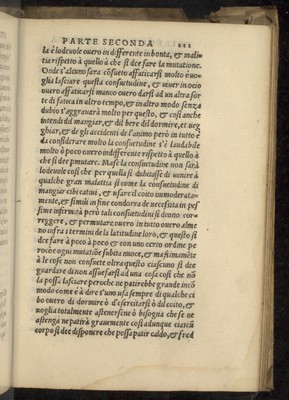 PARTE SECONDA
la è lodeuole ouero in differente in bonta, & mali-
tia rispetto à quello à che si dee fare la mutatione.
Onde s'alcuno sara cōsueto affaticarsi molto è uo-
glia lasciare questa consuetudine, & uiuer in ocio
ouero affaticarsi manco ouero darsi ad un altra sor
te di fatica in altro tempo, & in altro modo senza
dubio s'aggrauarà molto per questo, & cosi anche
intendi del mangiar, & del bere del dormire, et ueg
ghiar, & de gli accidenti de l'animo però in tutto è
da considerare molto la consuetudine s'è laudabile
molto ò poco ouero indifferente rispetto à quello à
che si dee pmutare. Ma se la consuetudine non sarà
lodeuole cosi che per quella si dubitasse di uenire à
qualche gran malattia si come la consuetudine di
mangiar cibi catiui, & usare il coito inmoderato-
mente, & simili in fine condorra de necessita in pes
sime infirmità però tali consuetudini si deono cor-
reggere, & permutare ouero in tutto ouero alme
no infra i termini de la latitudine loro, & questo si
dee fare à poco à poco & con uno certo ordine pe
roche ogni mutatiōe subita nuoce, & massimamēte
à le cose non consuete oltra questo ciascuno si dee
guardare di non assuefarsi ad una cosa cosi che nō
la possa lasciare peroche ne patirebbe grande incō
modo come è à dire s'uno usa sempre di qualche ci
bo ouero di dormire ò d'esercitarsi ò del coito, &
uoglia totalmente astenersene ò bisogna che se ne
astenga ne patirà grauemente cosi adunque ciascū
corpo si dee disponere che possa patir caldo, & fred